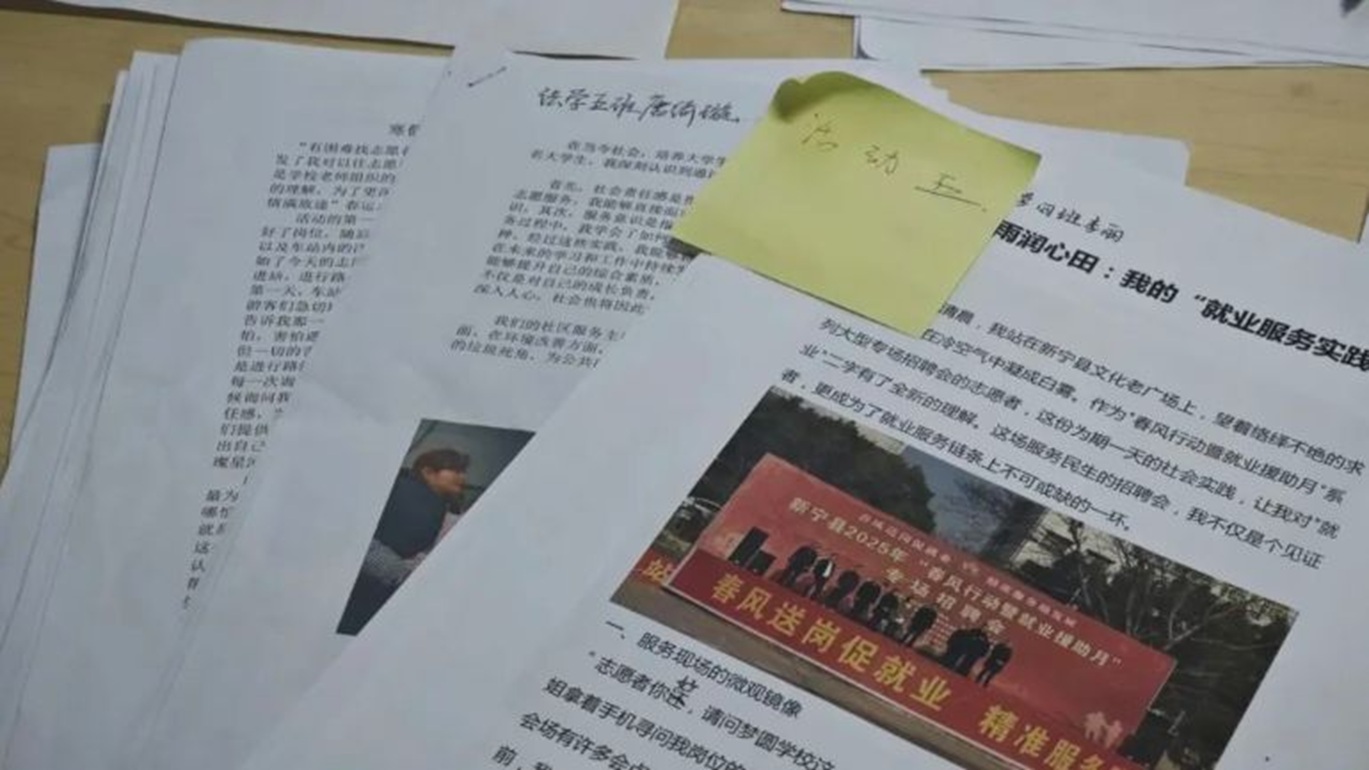 寒假
“有困难找志愿者
发了我对以往志愿
是学校老师组织的
的理解，为了更深
情满旅途”在运
活动的第一
好了岗位，随后
以及车站内的
始了今天的志
进站，进行路
第一天，车站
游客们急切
告诉我那一
怕，害怕
但一切的
是进行路
每一次询
候询问我
任感，
们提供
出自己
最为
就是
这
法学五班
在当今社会，培养大学生
名大学生，我深刻认识到通过
首先，社会责任感是
志愿服务，我能够直接面
识；其次，服务意识是指
务过程中，我学会了如何
种。经过这些实践，我能够
在未来的学习和工作中持续
能够提升自己的综合素质，
不仅是对自己的成长负责，
深入人心，社会也将因此
我们的社区服务主
面。在环境改善方面，
的垃圾死角，为公共
活动五
四班李丽
雨润心田：我的“就业服务实践
清晨，我站在新宁县文化老广场上，望着络绎不绝的求
在冷空气中凝成白雾。作为“春风行动暨就业援助月”系
列大型专场招聘会的志愿者，这份为期一天的社会实践，让我对“就
业”二字有了全新的理解。这场服务民生的招聘会，我不仅是个见证
者，更成为了就业服务链条上不可或缺的一环。
新宁县2025年“春风行动暨就业援助月”
专场招聘会
春风送岗促就业 精准服务
一、服务现场的微观镜像
“志愿者你好，请问梦圆学校这
姐拿着手机寻问我岗位的
会场有许多会
前，我